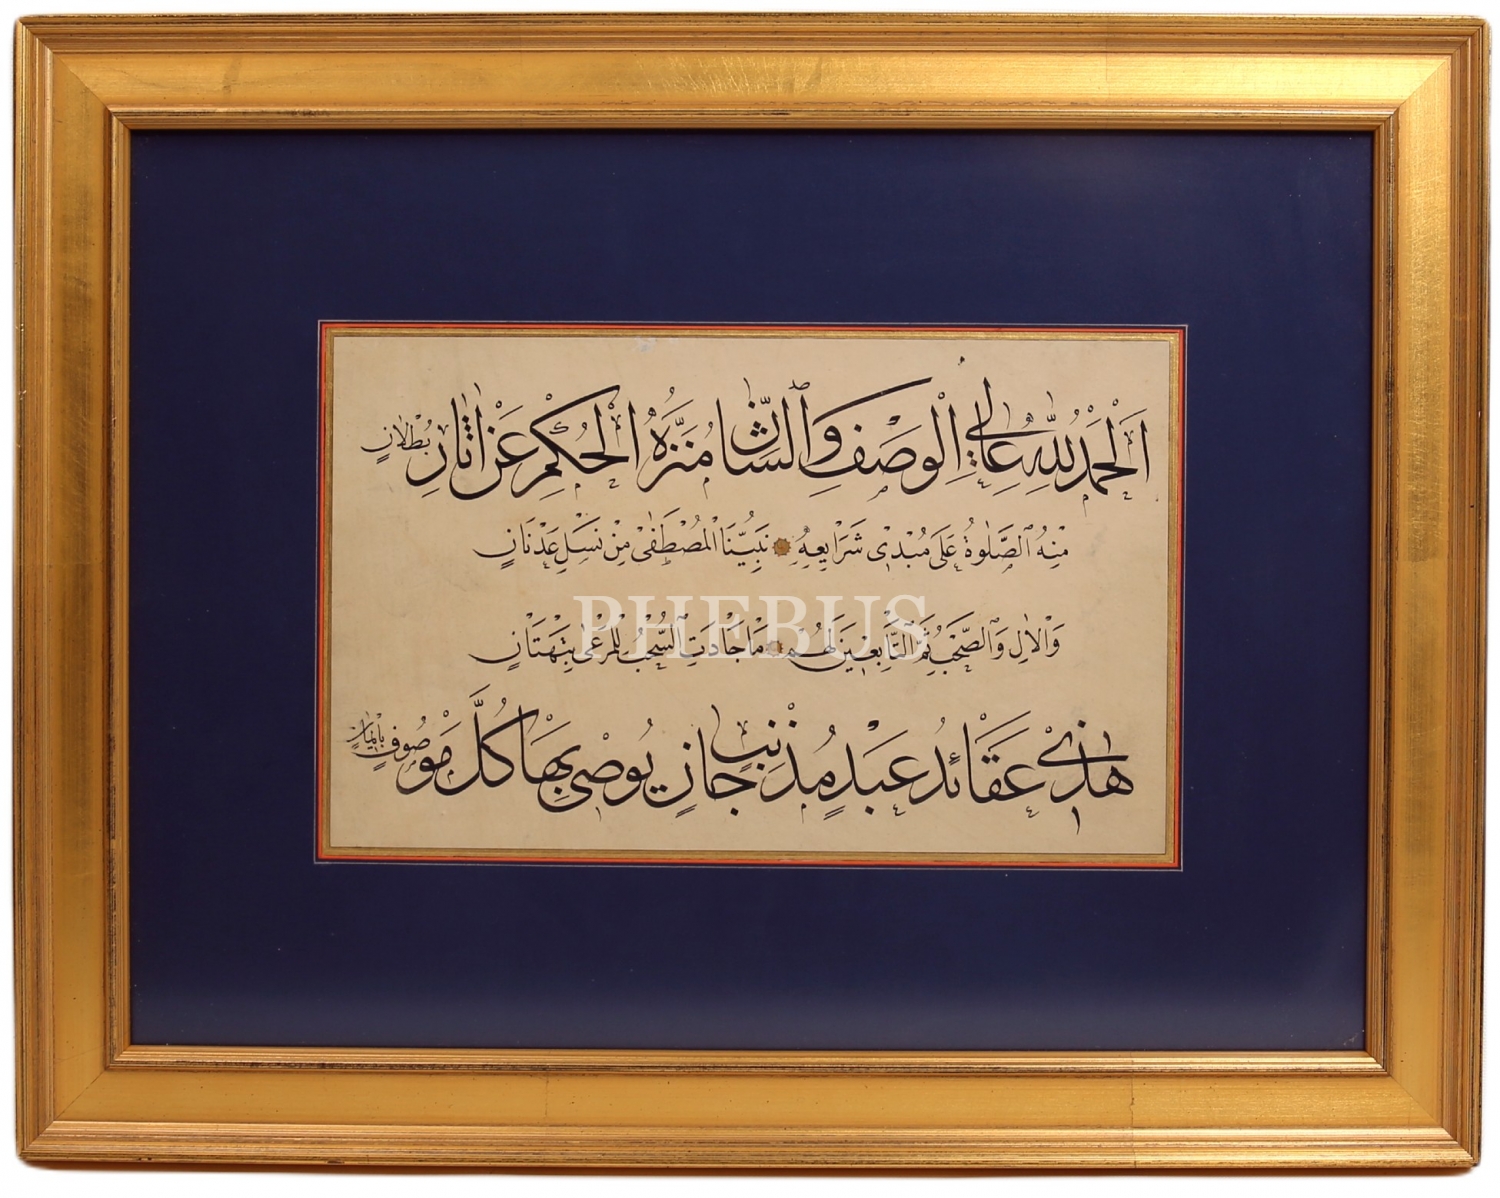 اَلْحَمْدُ لِلّٰهِ عَالِي الْوَصْفِ وَالشَّانِ مُنَزَّهُ الْحُكْمِ عَنْ اٰثَارِ بُطْلَانٍ
مِنْهُ الصَّلٰوةُ عَلٰى مُبْدِى شَرَايِعِهِ نَبِيِّنَا الْمُصْطَفٰى مِنْ نَسْلِ عَدْنَانٍ
وَالْاٰلِ وَالصَّحْبِ ثُمَّ التَّابِعِينَ لَهُمْ مَا جَادَتِ السُّحْبُ لِلْمَرْعٰى بِتَهْتَانٍ
هٰذِى عَقَائِدُ عَبْدٍ مُذْنِبٍ جَانٍ يُوصٰى بِهَا كُلَّ مَوْصُوفٍ بِاٖيمَانٍ
PHEBUS